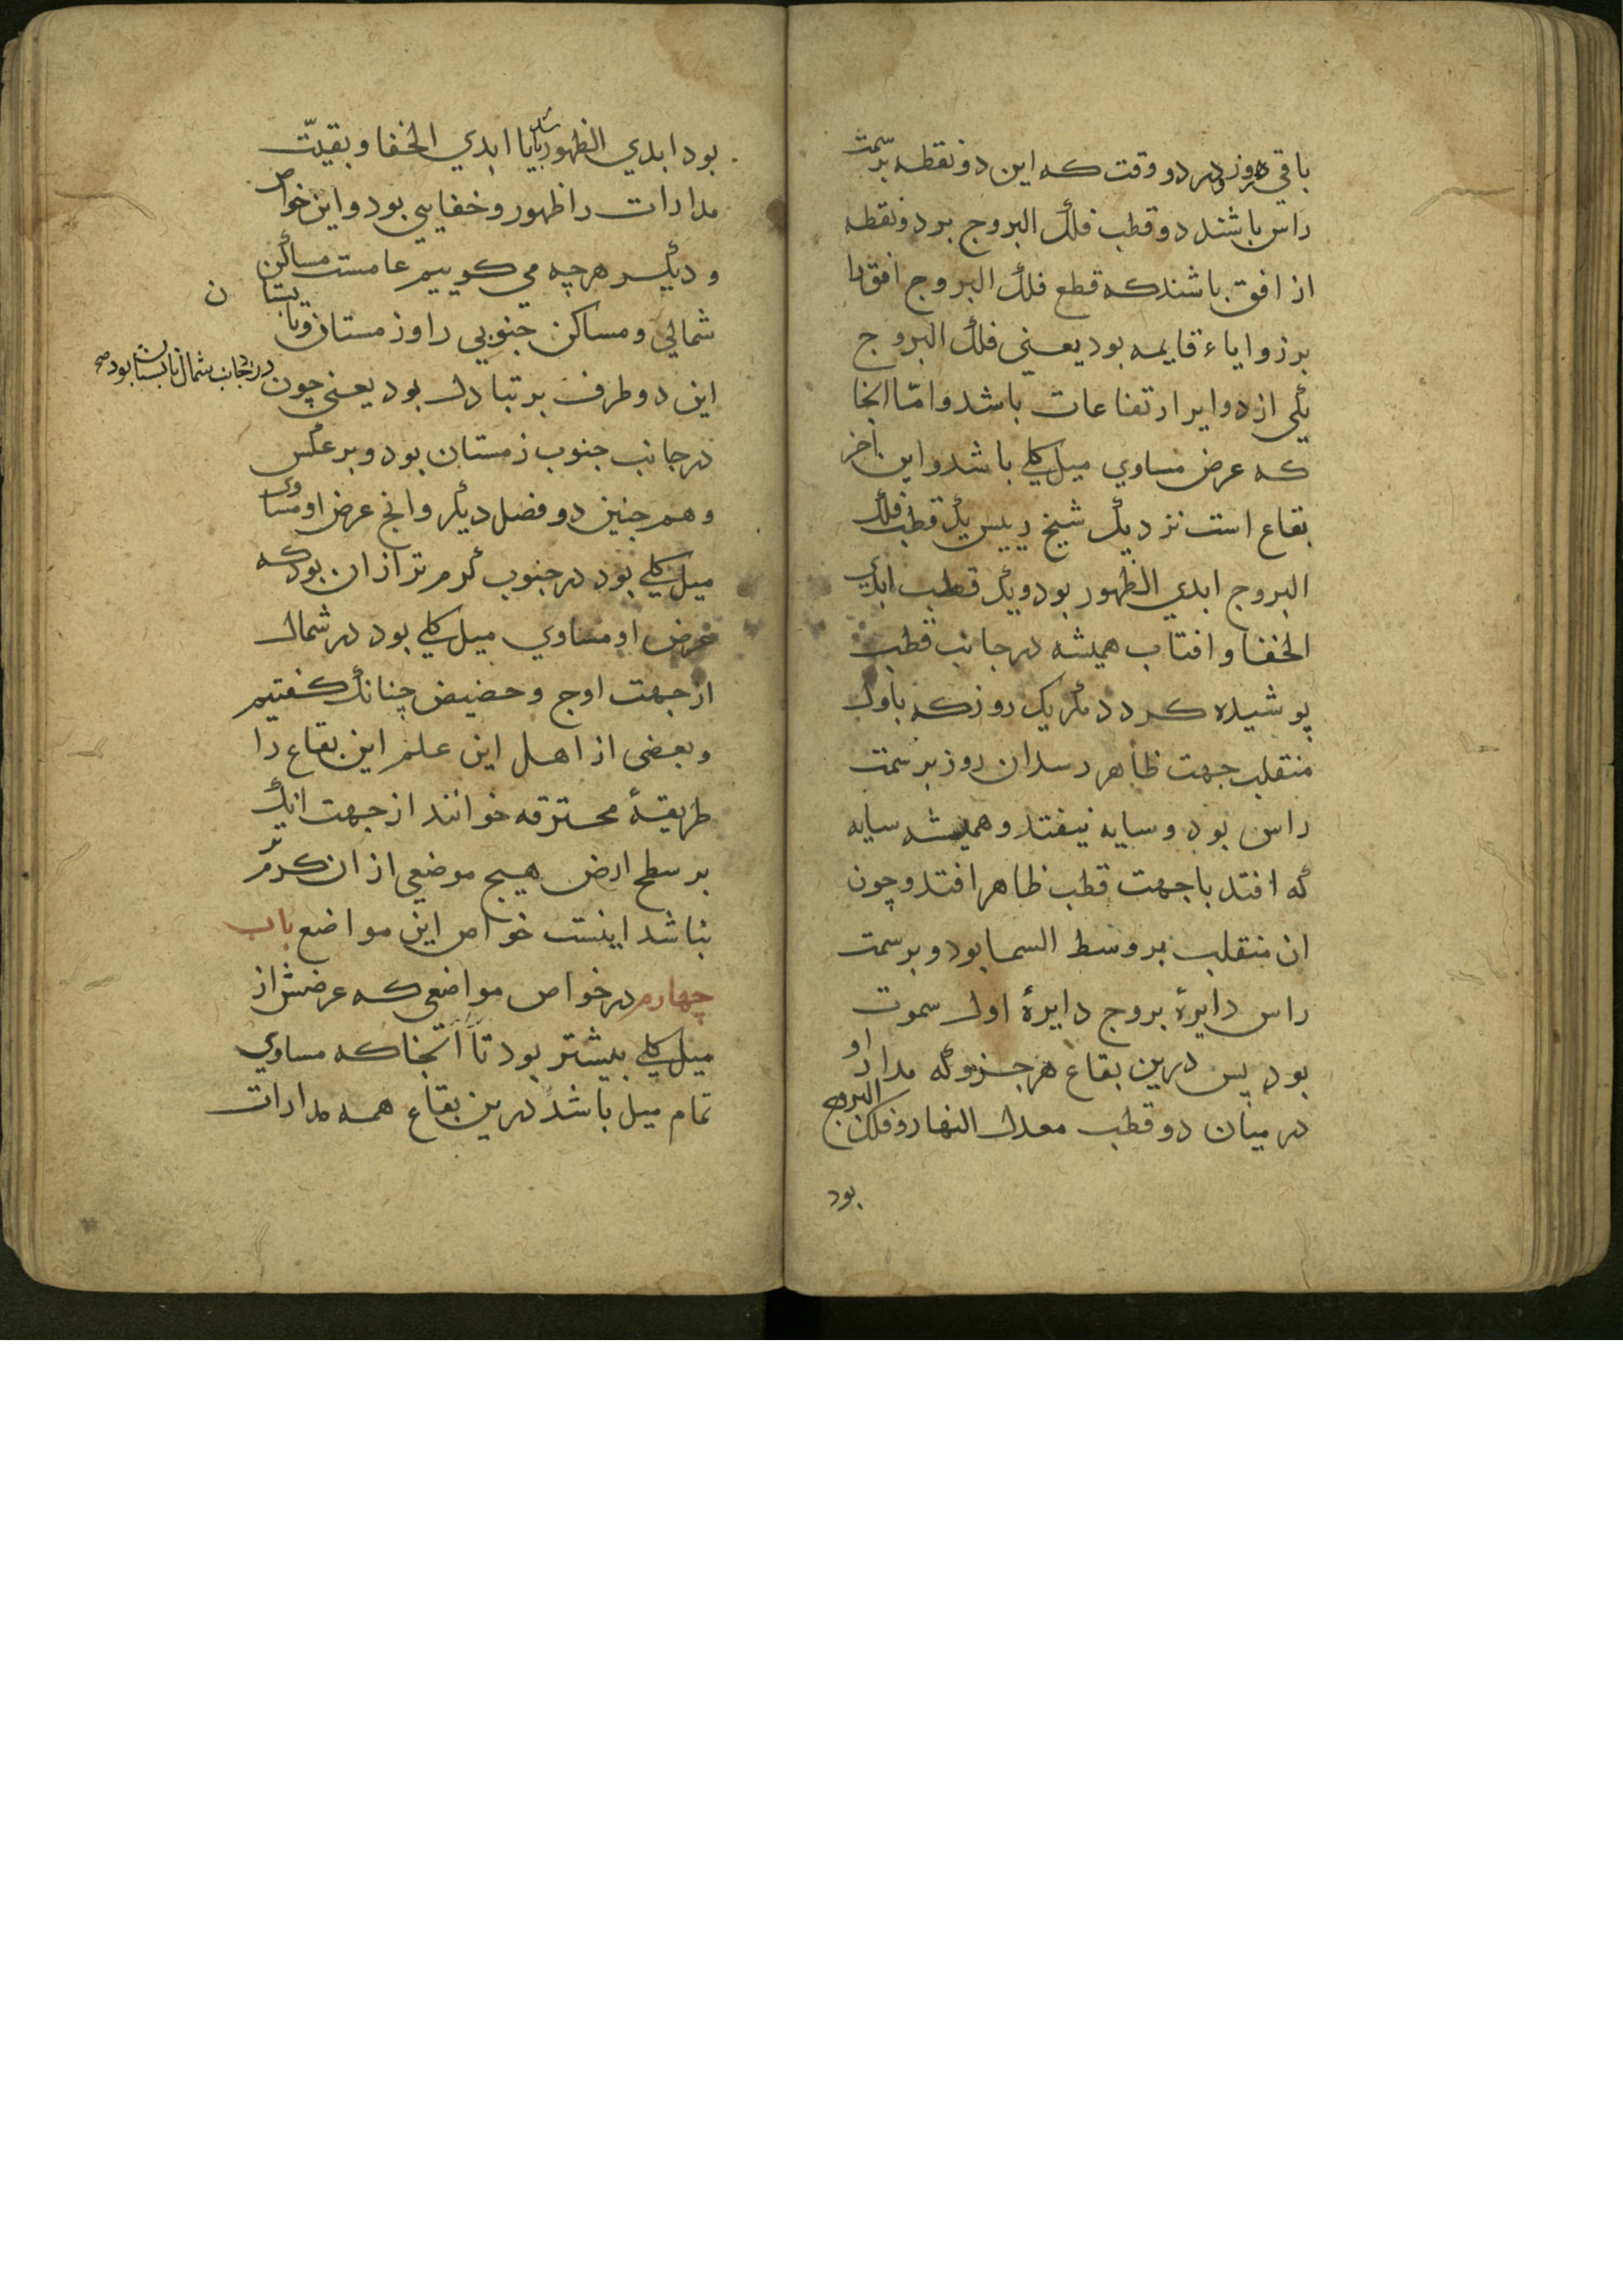 باقی روز و در دو وقت که این دو نقطه بر سمت
راس باشند دو قطب فلک البروج بر دو نقطه
از افق باشند که قطع فلک البروج افق را
بر زوایاء قایمه بود یعنی فلک البروج
یکی از دوایر ارتفاعات باشد و امّا انجا
که عرض مساوي میل کلی باشد و این اخر
بقاع است نزدیک شیخ رییس یک قطب فلک
البروج ابدي الظهور بود و یک قطب ابدي
الخفا و افتاب همیشه در جانب قطب
پوشیده کردد مکر یک روز که باول
منقلب جهت ظاهر رسد ان روز بر سمت
راس بود و سایه نیفتد و همیشه سایه
که افتد با جهت قطب ظاهر افتد و چون
ان منقلب بر وسط السما بود و بر سمت
راس دایرهٔ بروج دایرهٔ اول سموت
بود پس درین بقاع هر جزو که مدار او
در میان دو قطب معدل النهار و فلک البروج
بود
بود ابدي الظهور باشد یا ابدي الخفا و بقیّت
مدارات را ظهور و خفایی بود و این خواص
و دیکر هرچه می کوییم عامست مساکن
شمالي و مساکن جنوبي را و زمستان و تابستان
این دو طرف بر تبادل بود یعنی چون در جانب شمال تابستان بود صح
در جانب جنوب زمستان بود و بر عکس
و هم چنین دو فصل دیکر و انچ عرض او مساوی
میل کلی بود در جنوب کرم تر از ان بود که
عرض او مساوي میل کلی بود در شمال
از جهت اوج و حضیض چنانک کفتیم
و بعضی از اهل این علم این بقاع را
طریقهٔ محترقه خوانند از جهت انک
بر سطح ارض هیچ موضعی از ان کرم تر
نباشد اینست خواص این مواضع باب
چهارم در خواص مواضعی که عرضش از
میل کلی بیشتر بود تا آنجا که مساوي
تمام میل باشد درین بقاع همه مدارات